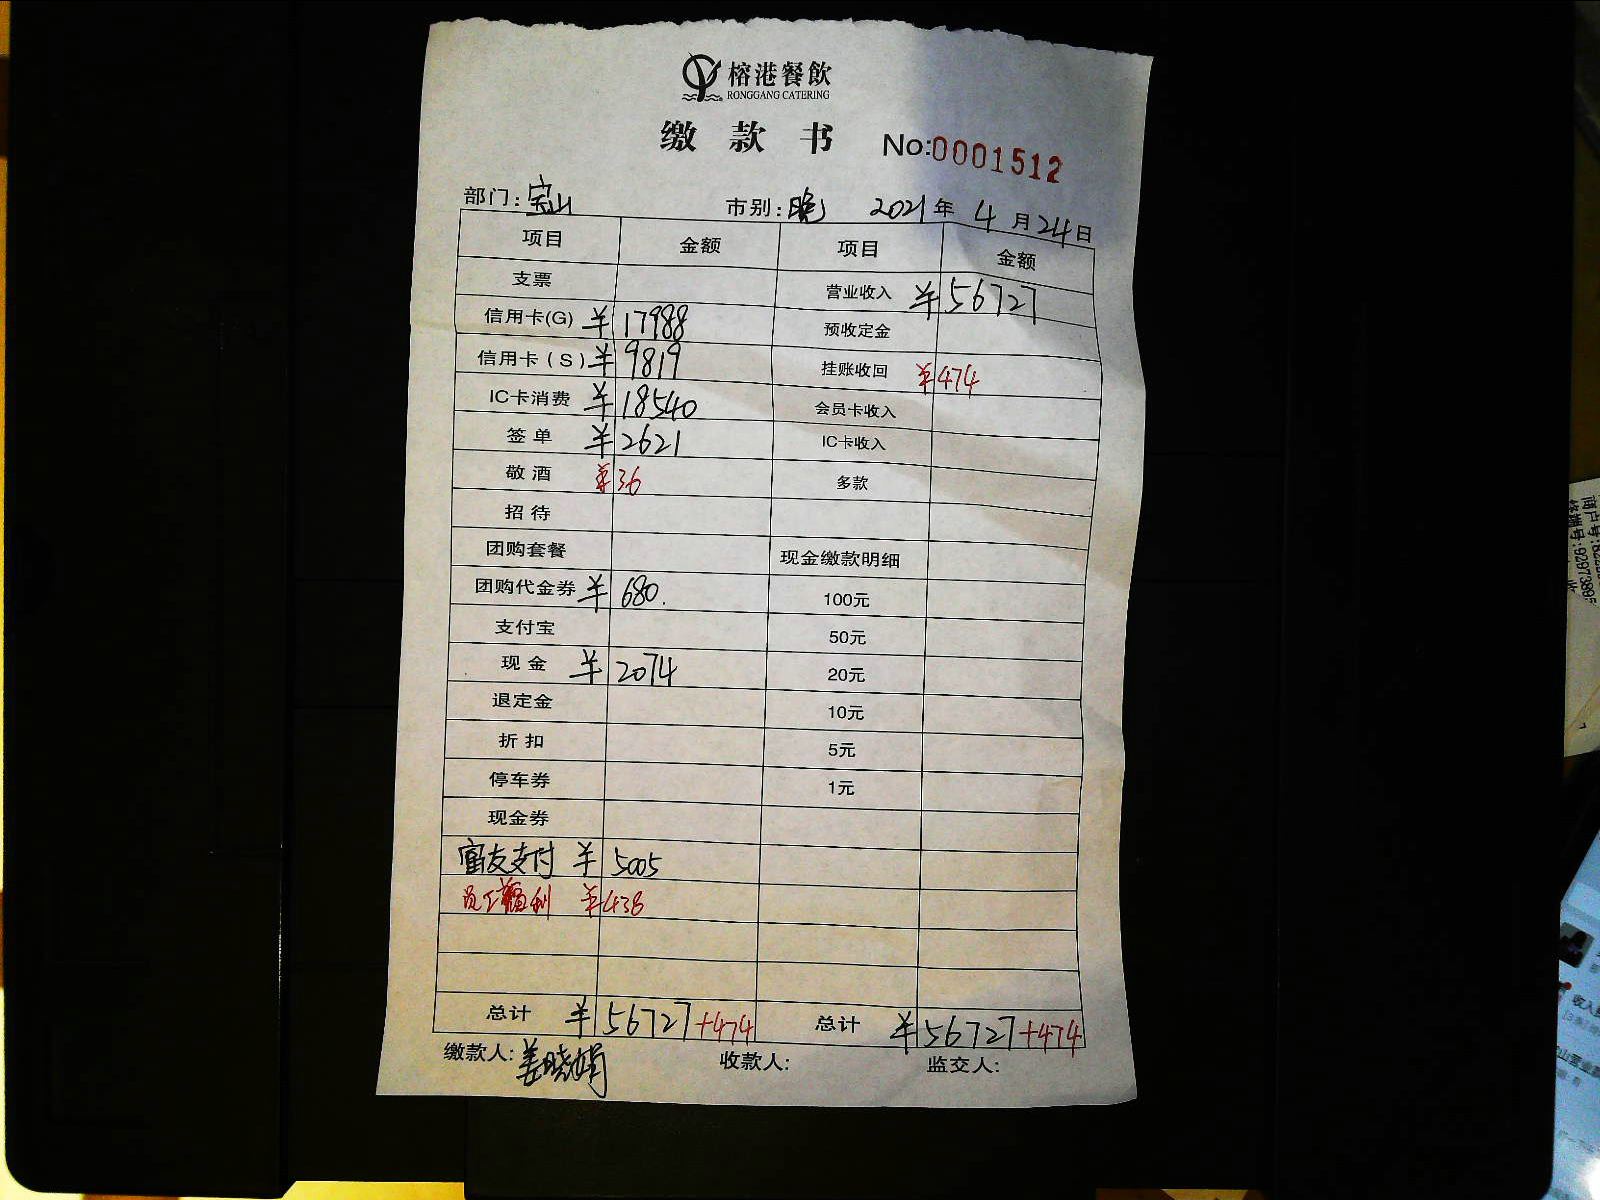 榕港餐飲
RONGGANG CATERING
缴款书 No:0001512
部门:宝山 市别:晚 2021年4月24日
项目 金额 项目 金额
支票 营业收入 ¥56727
信用卡(G) ¥17988 预收定金
信用卡(S) ¥9819 挂账收回 ¥474
IC卡消费 ¥18540 会员卡收入
签单 ¥2621 IC卡收入
敬酒 ¥36 多款
招待
团购套餐 现金缴款明细
团购代金券 ¥680. 100元
支付宝 50元
现金 ¥2074 20元
退定金 10元
折扣 5元
停车券 1元
现金券
富友支付 ¥5005
员工福利 ¥438
总计 ¥56727+474 总计 ¥56727+474
缴款人:姜晓娟 收款人: 监交人: